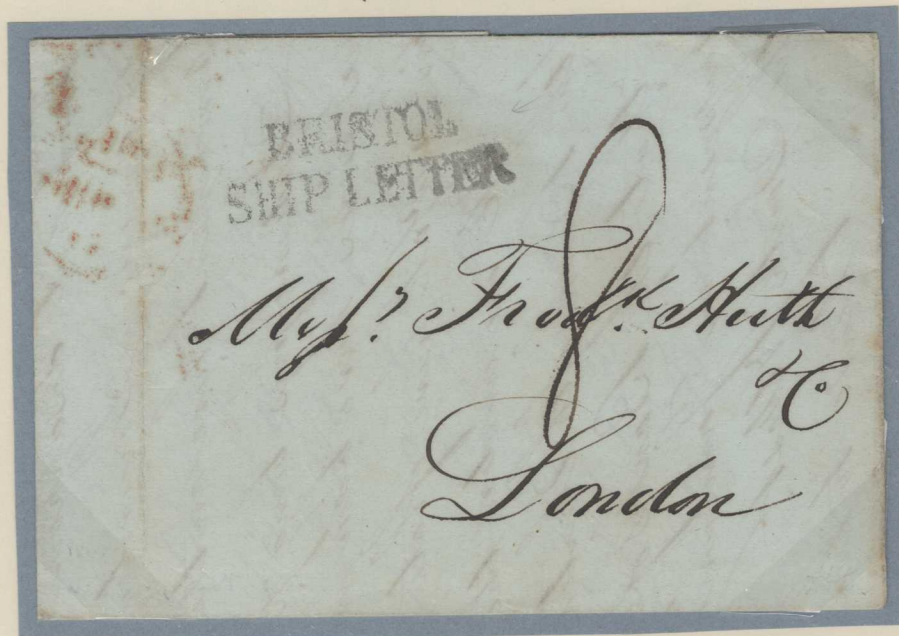 BRISTOL
SHIP LETTER
8
Messrs. Fredk. Huth
& Co
London